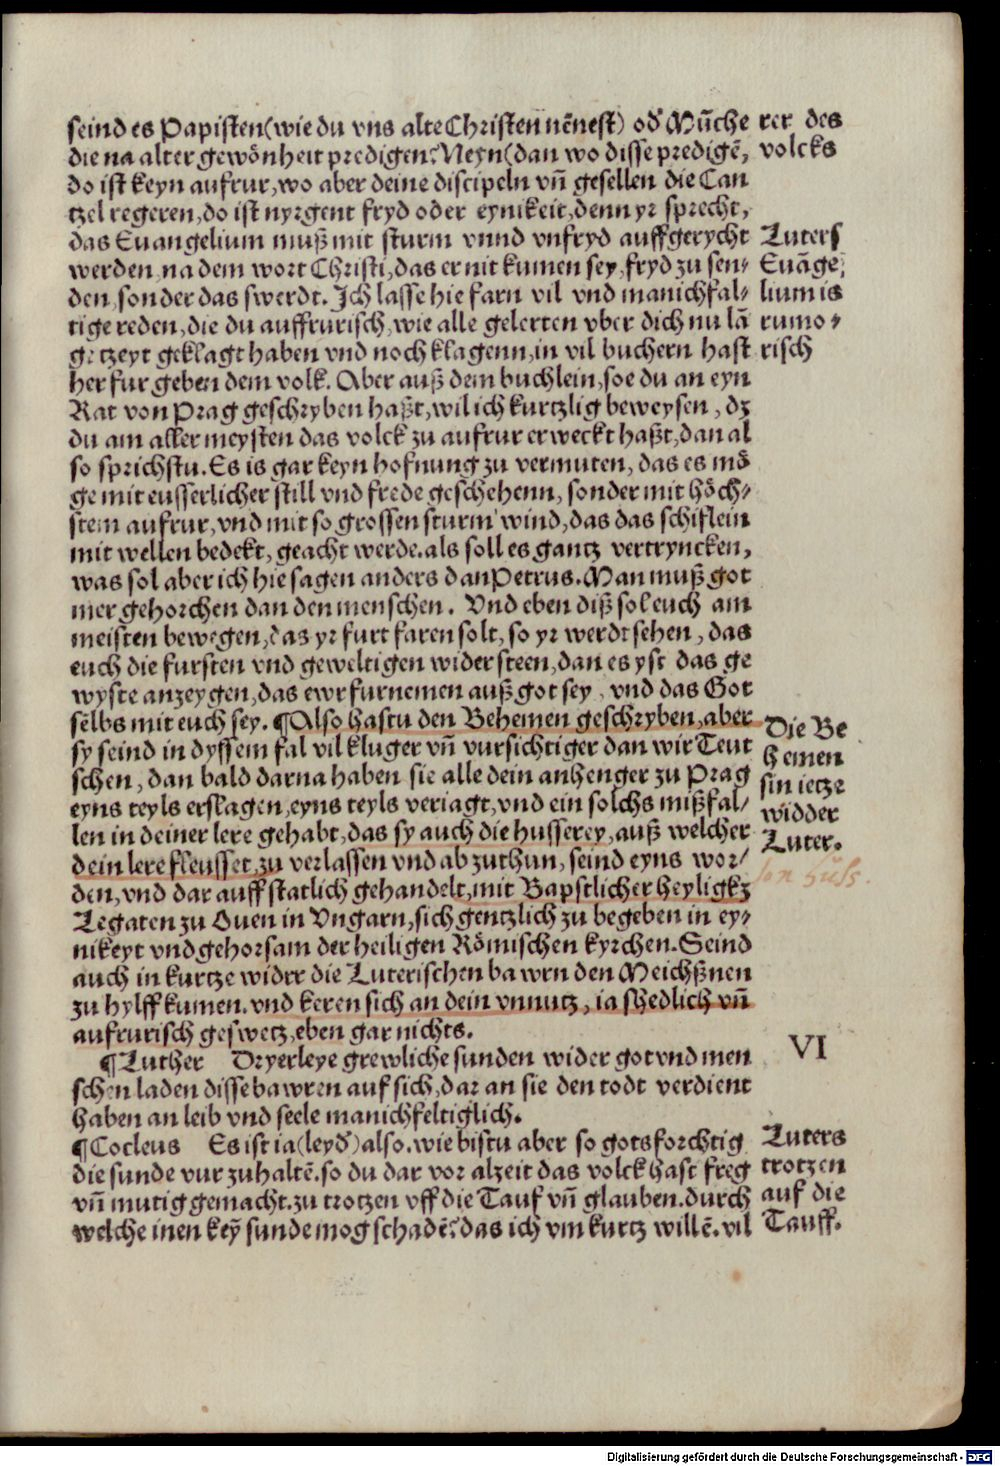 seind es Papisten(wie du vns alte Christen nēnest) od' Mūche
die na alter gewönheit predigen? Neyn(dan wo disse predigē,
do ist keyn aufrur, wo aber deine discipeln vn̄ gesellen die Can
tzel regeren, do ist nyrgent fryd oder eynikeit, denn yr sprecht,
das Euangelium muß mit sturm vnnd vnfryd auffgerycht
werden, na dem wort Christi, das er nit kumen sey, fryd zu sen⸗
den, sonder das swerdt. Ich lasse hie farn vil vnd manichfal⸗
tige reden, die du auffrurisch, wie alle gelerten vber dich nu lā
ge tzeyt geklagt haben vnd noch klagenn, in vil buchern hast
her fur geben dem volk. Aber auß dem buchlein, soe du an eyn
Rat von Prag geschryben haßt, wil ich kurtzlig beweysen, dz
du am aller meysten das volck zu aufrur erweckt haßt, dan al
so sprichstu. Es is gar keyn hofnung zu vermuten, das es mö
ge mit eusserlicher still vnd frede geschehenn, sonder mit höch⸗
stem aufrur, vnd mit so grossen sturm wind, das das schiflein
mit wellen bedekt, geacht werde. als soll es gantz vertryncken,
was sol aber ich hie sagen anders dan Petrus. Man muß got
mer gehorchen dan den menschen. Vnd eben diß sol euch am
meisten bewegen, das yr furt faren solt, so yr werdt sehen, das
euch die fursten vnd geweltigen wider steen, dan es yst das ge
wyste anzeygen, das ewr furnemen auß got sey, vnd das Got
selbs mit euch sey. ¶Also hastu den Behemen geschryben, aber
sy seind in dyssem fal vil kluger vn̄ vursichtiger dan wir Teut
schen, dan bald darna haben sie alle dein anhenger zu Prag
eyns teyls erslagen, eyns teyls veriagt, vnd ein solchs mißfal⸗
len in deiner lere gehabt, das sy auch die husserey, auß welcher
dein lere fleusset, zu verlassen vnd ab zuthun, seind eyns wor⸗
den, vnd dar auff statlich gehandelt, mit Bapstlicher heyligkz
Legaten zu Ouen in Vngarn, sich gentzlich zu begeben in ey⸗
nikeyt vnd gehorsam der heiligen Römischen kyrchen. Seind
auch in kurtze wider die Luterischen bawrn den Meichßnen
zu hylff kumen. vnd keren sich an dein vnnutz, ia shedlich vn̄
aufrurisch geswetz, eben gar nichts.
¶Luther Dryerleye grewliche sunden wider got vnd men
schen laden disse bawren auf sich, dar an sie den todt verdient
haben an leib vnd seele manichfeltiglich.
¶Cocleus Es ist ia(leyd')also. wie bistu aber so gotsforchtig
die sunde vur zuhaltē. so du dar vor alzeit das volck hast freg
vn̄ mutig gemacht. zu trotzen vff die Tauf vn̄ glauben. durch
welche inen keȳ sunde mog schadē? das ich vm kurtz willē. vil
rer des
volcks
Luters
Euāge⸗
lium is
rumo⸗
risch
Die Be
hemen
sin ietze
widder
Luter.
VI
Luters
trotzen
auf die
Tauff.
Digitalisierung gefördert durch die Deutsche Forschungsgemeinschaft - DFG